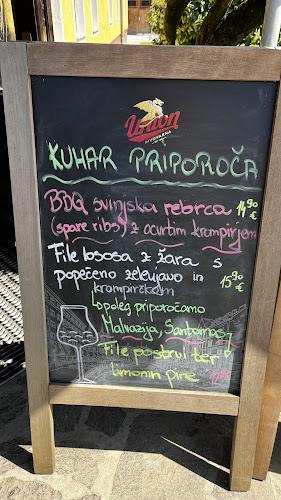 Union
PIVOVARNA
KUHAR PRIPOROČA
BBQ svinjska rebrca 14,90 €
(spare ribs) z ocvrtim krompirjem
File lososa z žara s
popečeno zelenjavo in 15,90 €
krompirčkom
poleg priporočamo
Malvazija, Santomas
File postrvi ter
limonin pire